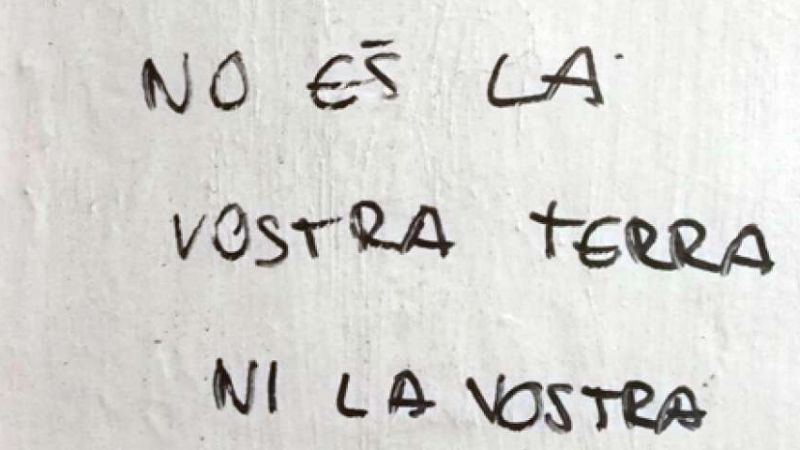 NO ÉS LA
VOSTRA TERRA
NI LA VOSTRA